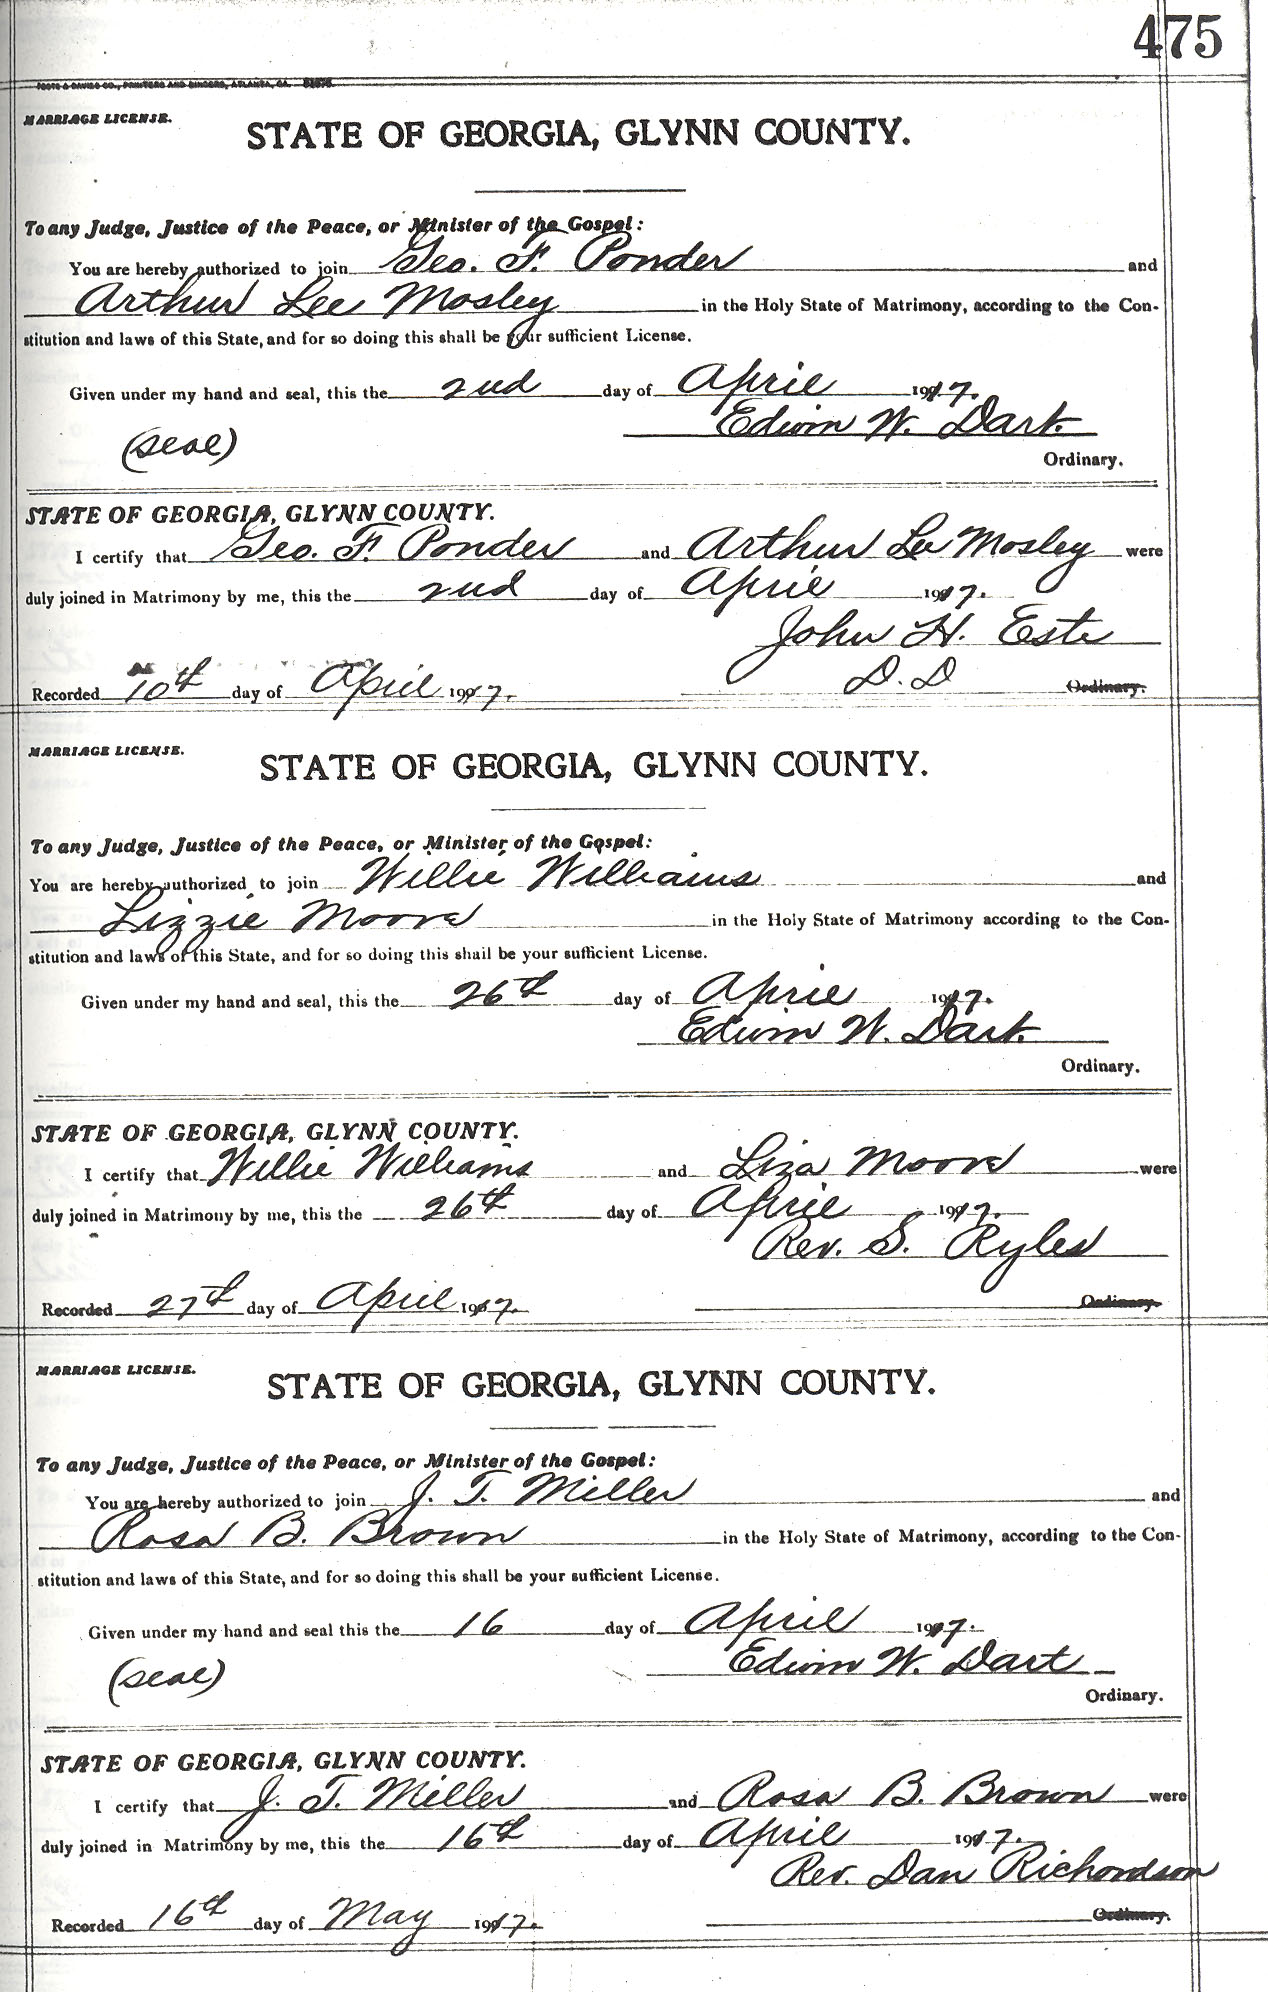 475
FOOTE & DAVIES CO., PRINTERS AND BINDERS, ATLANTA, GA.
MARRIAGE LICENSE.
STATE OF GEORGIA, GLYNN COUNTY.
To any Judge, Justice of the Peace, or Minister of the Gospel:
You are hereby authorized to join Geo. F. Ponder and
Arthur Lee Mosley in the Holy State of Matrimony, according to the Con-
stitution and laws of this State, and for so doing this shall be your sufficient License.
Given under my hand and seal, this the 2nd day of April 1917.
Edwin W. Dart.
(seal)
Ordinary.
STATE OF GEORGIA, GLYNN COUNTY.
I certify that Geo. F. Ponder and Arthur Lee Mosley were
duly joined in Matrimony by me, this the 2nd day of April 1917.
John H. Este
D. D
Recorded 10th day of April 1917. Ordinary.
MARRIAGE LICENSE.
STATE OF GEORGIA, GLYNN COUNTY.
To any Judge, Justice of the Peace, or Minister of the Gospel:
You are hereby authorized to join Willie Williams and
Lizzie Moore in the Holy State of Matrimony according to the Con-
stitution and laws of this State, and for so doing this shall be your sufficient License.
Given under my hand and seal, this the 26th day of April 1917.
Edwin W. Dart.
Ordinary.
STATE OF GEORGIA, GLYNN COUNTY.
I certify that Willie Williams and Liza Moore were
duly joined in Matrimony by me, this the 26th day of April 1917.
Rev. S. Ryles
Recorded 27th day of April 1917. Ordinary.
MARRIAGE LICENSE.
STATE OF GEORGIA, GLYNN COUNTY.
To any Judge, Justice of the Peace, or Minister of the Gospel:
You are hereby authorized to join J. T. Miller and
Rosa B. Brown in the Holy State of Matrimony, according to the Con-
stitution and laws of this State, and for so doing this shall be your sufficient License.
Given under my hand and seal this the 16 day of April 1917.
Edwin W. Dart
(seal)
Ordinary.
STATE OF GEORGIA, GLYNN COUNTY.
I certify that J. T. Miller and Rosa B. Brown were
duly joined in Matrimony by me, this the 16th day of April 1917.
Rev. Dan Richardson
Recorded 16th day of May 1917. Ordinary.